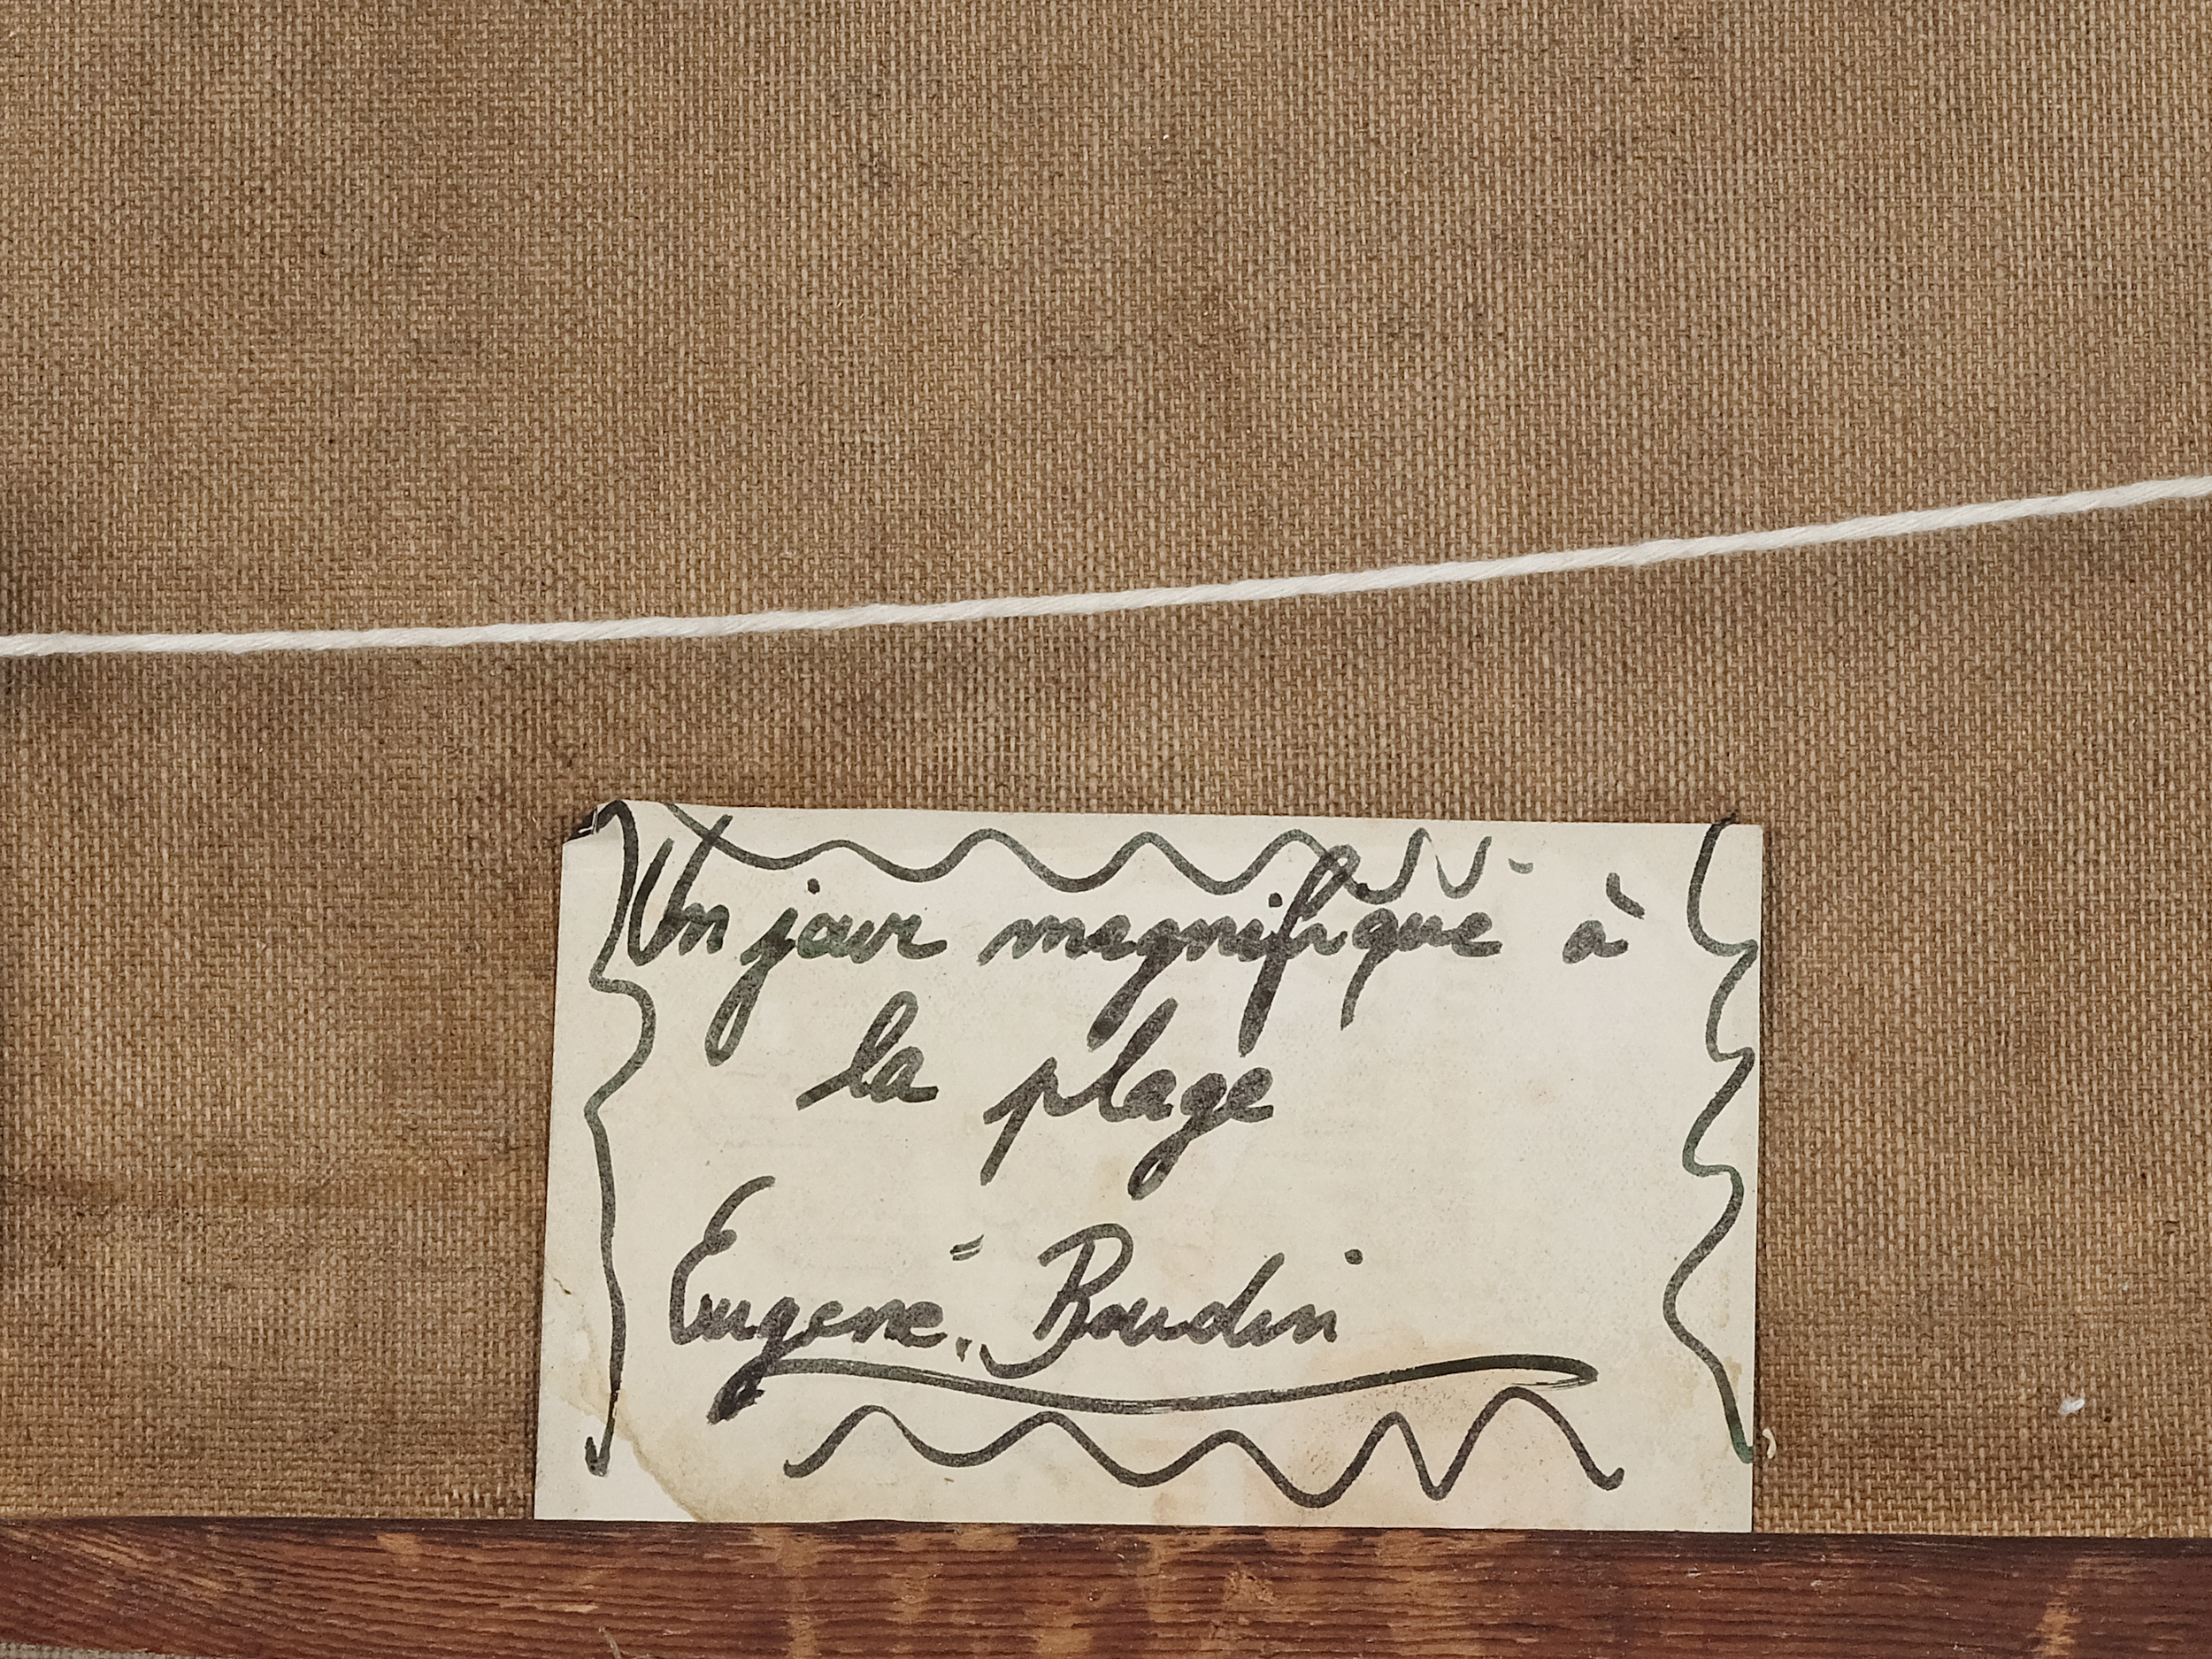 Un jour magnifique à
la plage
Eugene. Boudin